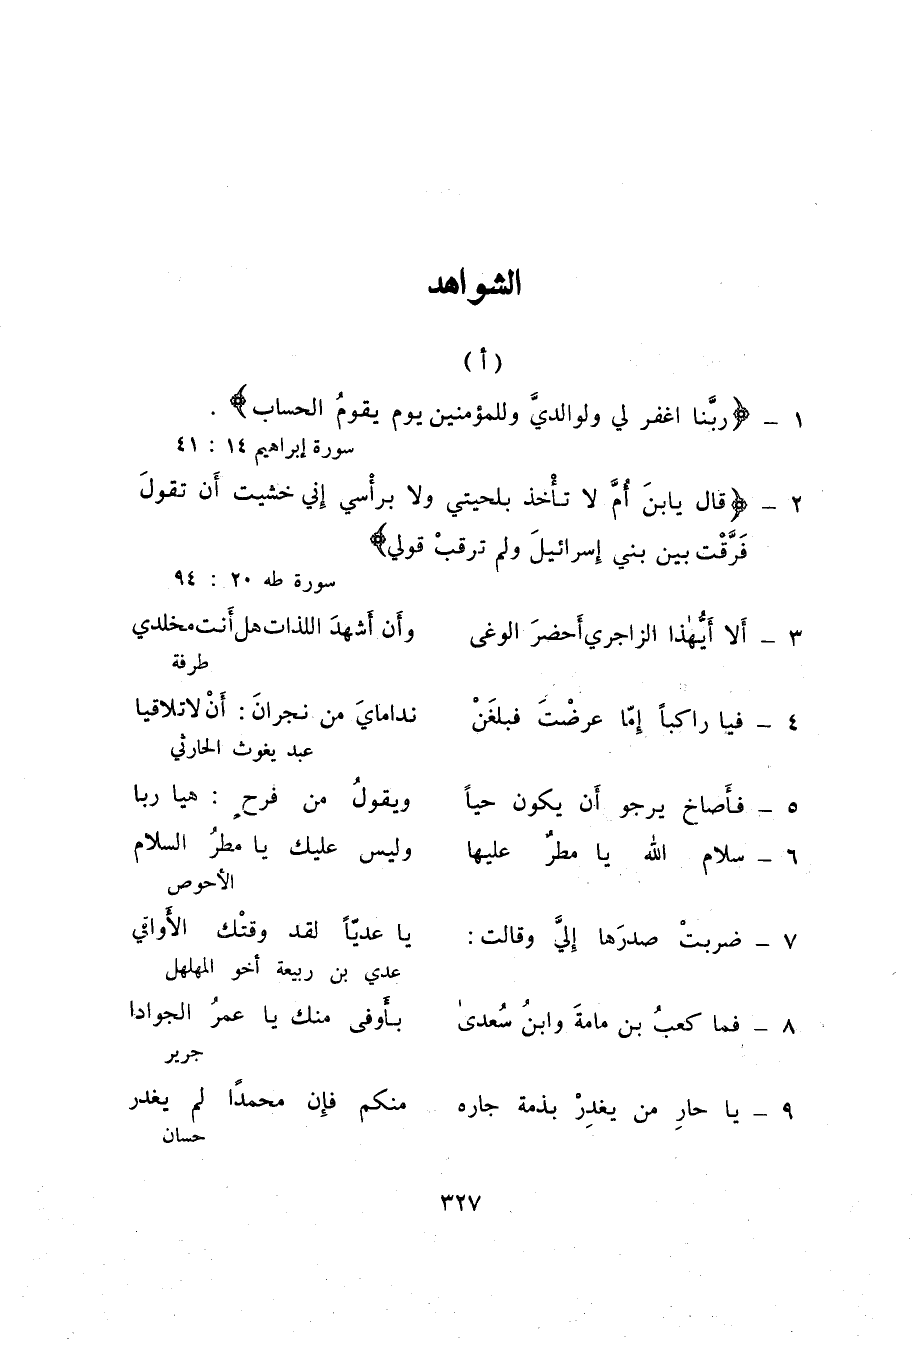 الشواهد
( أ )
١ ــ ﴿ربَّنا اغفر لي ولوالديَّ وللمؤمنين يوم يقومُ الحساب﴾ .
سورة إبراهيم ١٤ : ٤١
٢ ــ ﴿قال يابنَ أُمَّ لا تأْخذ بلحيتي ولا برأْسي إني خشيت أَن تقولَ
فَرَّقْت بين بني إسرائيلَ ولم ترقبْ قولي﴾
سورة طه ٢٠ : ٩٤
٣ ــ أَلا أَيُّهٰذا الزاجري أَحضرَ الوغى وأَن أَشهدَ اللذات هل أَنت مخلدي
طرفة
٤ ــ فيا راكباً إمّا عرضْتَ فبلغَنْ ندامايَ من نجرانَ : أَنْ لا تلاقيا
عبد يغوث الحارثي
٥ ــ فأَصاخ يرجو أَن يكون حياً ويقولُ من فرحٍ : هيا ربا
٦ ــ سلام الله يا مطرٌ عليها وليس عليك يا مطرُ السلام
الأحوص
٧ ــ ضربتْ صدرَها إليَّ وقالت : يا عديّاً لقد وقتْك الأَواقي
عدي بن ربيعة أخو المهلهل
٨ ــ فما كعبُ بن مامةَ وابنُ سُعدىٰ بأَوفى منك يا عمرُ الجوادا
جرير
٩ ــ يا حارِ من يغدِرْ بذمة جاره منكم فإن محمدًا لم يغدر
حسان
٣٢٧